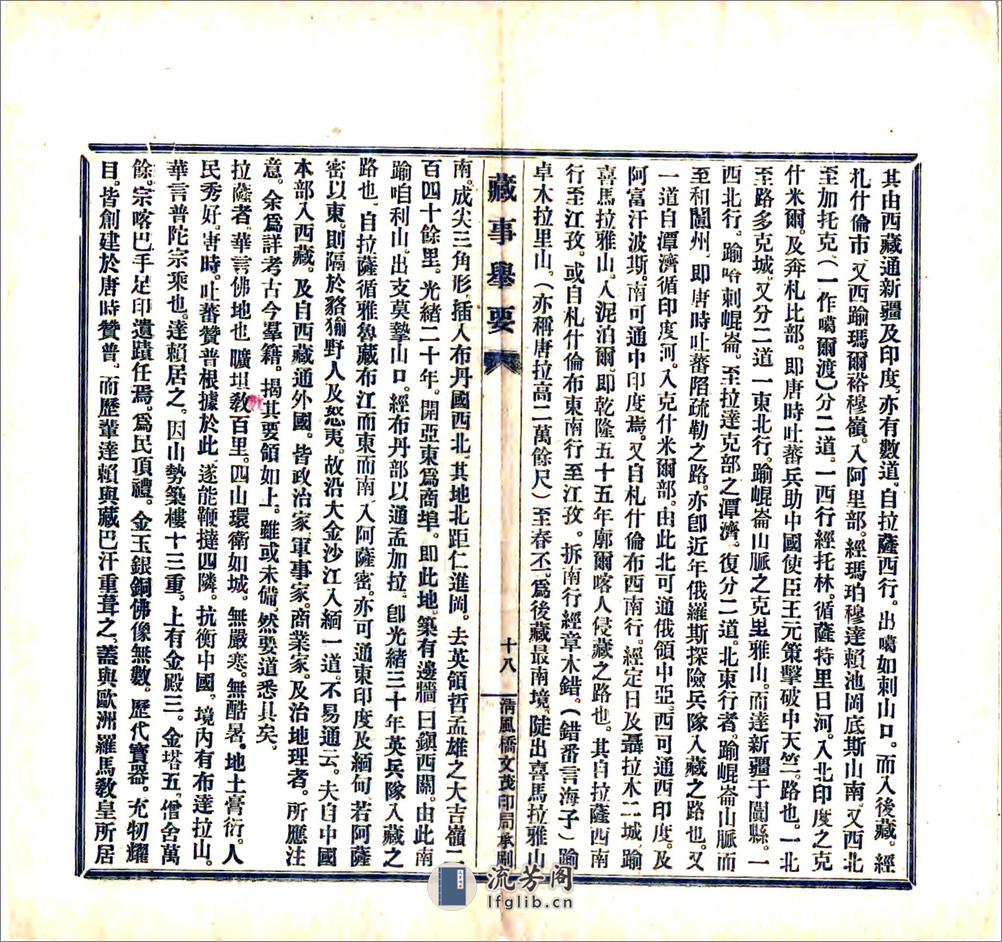 其由西藏通新疆及印度。亦有數道。自拉薩西行。出噶如剌山口。而入後藏。經
札什倫市。又西踰瑪爾裕穆嶺。入阿里部。經瑪珀穆達賴池岡底斯山南。又西北
至加托克。(一作噶爾渡)分二道。一西行經托林。循薩特里日河。入北印度之克
什米爾。及奔札比部。即唐時吐蕃兵助中國使臣王元策擊破中天竺。路也。一北
至路多克城。又分二道。一東北行。踰崐崙山脈之克里雅山。而達新疆于闐縣。一
西北行。踰哈剌崐崙。至拉達克部之潭濟。復分二道。北東行者。踰崐崙山脈而
至和闐州。即唐時吐蕃陷疏勒之路。亦卽近年俄羅斯探險兵隊入藏之路也。又
一道自潭濟循印度河。入克什米爾部。由此北可通俄領中亞。西可通西印度。及
阿富汗波斯。南可通中印度焉。又自札什倫布西南行。經定日及聶拉木二城踰
喜馬拉雅山。入泥泊爾。即乾隆五十五年廓爾喀人侵藏之路也。其自拉薩西南
行至江孜。或自札什倫布東南行至江孜。拆南行經章木錯。(錯番言海子)踰
卓木拉里山。(亦稱唐拉高二萬餘尺)至春丕。爲後藏最南境。陡出喜馬拉雅山
藏事舉要
十八
清風橋文茂印局承刷
南。成尖三角形。插入布丹國西北。其地北距仁進岡。去英領哲孟雄之大吉嶺二
百四十餘里。光緒二十年。開亞東爲商埠。即此地。築有邊牆曰鎮西關。由此南
踰咱利山。出支莫摯山口。經布丹部以通孟加拉。卽光緒三十年英兵隊入藏之
路也。自拉薩循雅魯藏布江而東而南。入阿薩密。亦可通東印度及緬甸若阿薩
密以東。則隔於貉㺄野人及怒夷。故沿大金沙江入緬一道。不易通云。夫自中國
本部入西藏。及自西藏通外國。皆政治家。軍事家。商業家。及治地理者。所應注
意。余爲詳考古今羣籍。揭其要領如上。雖或未備。然要道悉具矣。
拉薩者。華言佛地也。曠垻敎百里。四山環衛如城。無嚴寒。無酷暑。地土膏衍。人
民秀好。唐時。吐蕃贊普根據於此。遂能鞭撻四隣。抗衡中國。境內有布達拉山。
華言普陀宗乘也。達賴居之。因山勢築樓十三重。上有金殿三。金塔五。僧舍萬
餘。宗喀巴手足印遺蹟任焉。爲民頂禮。金玉銀銅佛像無數。歷代寶器。充牣耀
目。皆創建於唐時贊普。而歷輩達賴與藏巴汗重葺之。蓋與歐洲羅馬敎皇所居
流芳阁
lfglib.cn